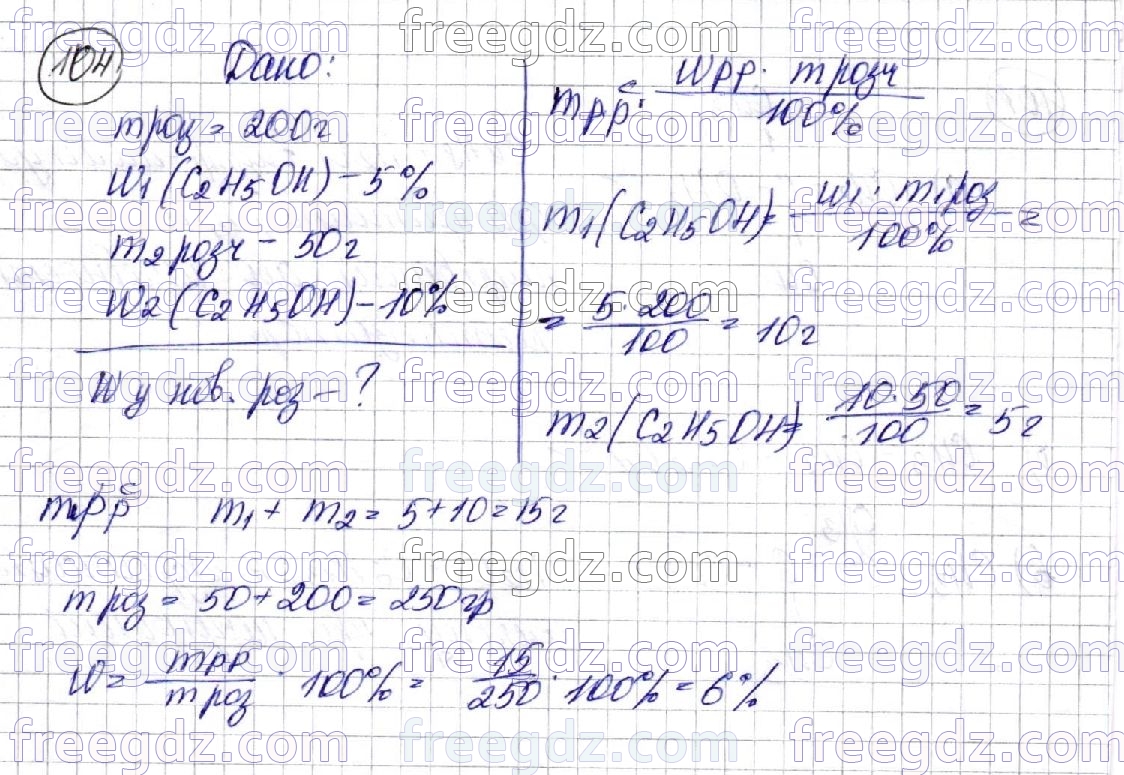 104
Дано:
mроз = 200г
W1 (C2H5OH) - 5%
m2 розч - 50г
W2 (C2H5OH) - 10%
W у нов. роз - ?
mрр = Wрр · mрозч / 100%
m1 (C2H5OH) = W1 · m1роз / 100% =
= 5 · 200 / 100 = 10г
m2 (C2H5OH) = 10 · 50 / 100 = 5г
mрр = m1 + m2 = 5 + 10 = 15г
mроз = 50 + 200 = 250гр
W = mрр / mроз · 100% = 15 / 250 · 100% = 6%
freegdz.com